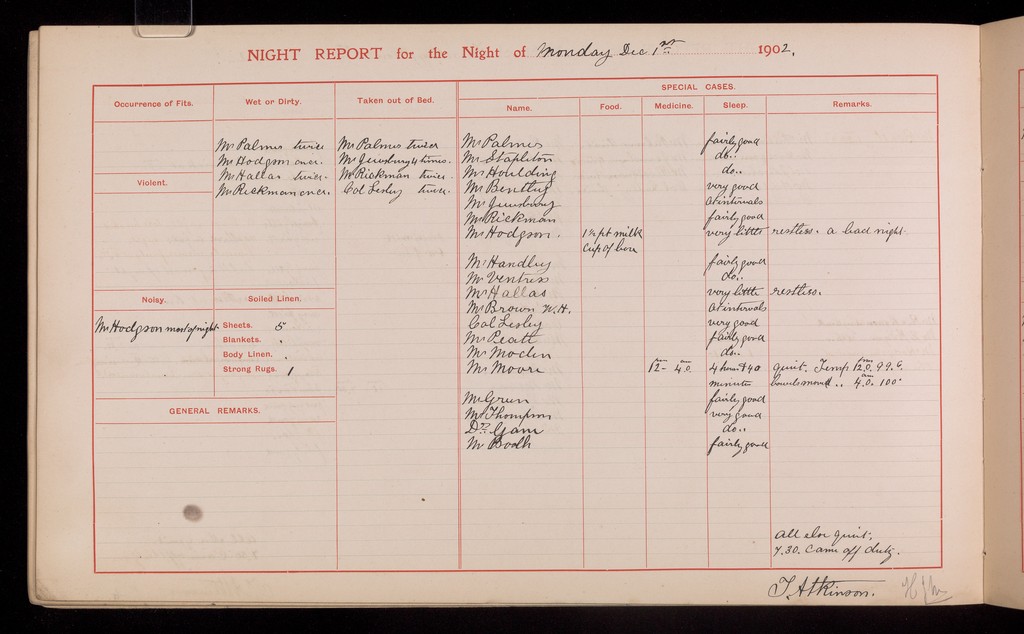 NIGHT REPORT for the Night of Monday Dec 1st 1902.
Occurrence of Fits.
Wet or Dirty.
Taken out of Bed.
SPECIAL CASES.
Name. Food. Medicine. Sleep. Remarks.
Mr Palmer twice
Mr Hodgson once.
Mr Hallas twice.
Mr Rickman once.
Mr Palmer twice
Mr Jewsbury 4 times.
Mr Rickman twice.
Col Lesley twice.
Violent.
Noisy.
Mr Hodgson most of night.
Soiled Linen.
Sheets. 5
Blankets. "
Body Linen. "
Strong Rugs. 1
GENERAL REMARKS.
Mr Palmer fairly good
Mr Stapleton do..
Mr Houlding do..
Mr Bentley very good
Mr Jewsbury at intervals
Mr Rickman fairly good
Mr Hodgson. 1½ pt milk very little restless. a bad night.
Cup of
Mr Handley fairly good
Mr Ventress do..
Mr Hallas very little restless.
Mr Brown W.H. at intervals
Col Lesley very good
Mr Peatt fairly good
Mr do..
Mr Moore 12 pm - 4.0 am 4 hours & 40 quiet. Temp 12.0 pm 99.6
minutes bowels moved .. 4.0 am 100°
Mr Green fairly good
Mr Thompson very good
Dr do..
Mr Booth fairly good
All else quiet.
7.30. Came off duty.
T. Atkinson.